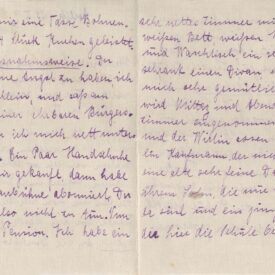 uns eine Tasse Bohnen-
Stück Kuchen geleistet
Ausnahmsweise. Du
keine Angst zu haben ich
allein, und sass an
einer ehrbaren Bürgers-
ich mich nett unter-
Ein Paar Handschuhe
mir gekauft dann habe
abonniert. Du
also nicht zu tun. Nun
Pension. Ich habe ein
sehr nettes Zimmer mit
weißem Bett weißem
und Waschtisch ein
schrank einen Divan
auch sehr gemütlich
wird Mittag und Abend
zimmer eingenommen
und der Wirtin essen
ein Kaufmann der
eine alte sehr feine D
ihrem Sohn, die nur
da sind und ein jun
die hier die Schule be